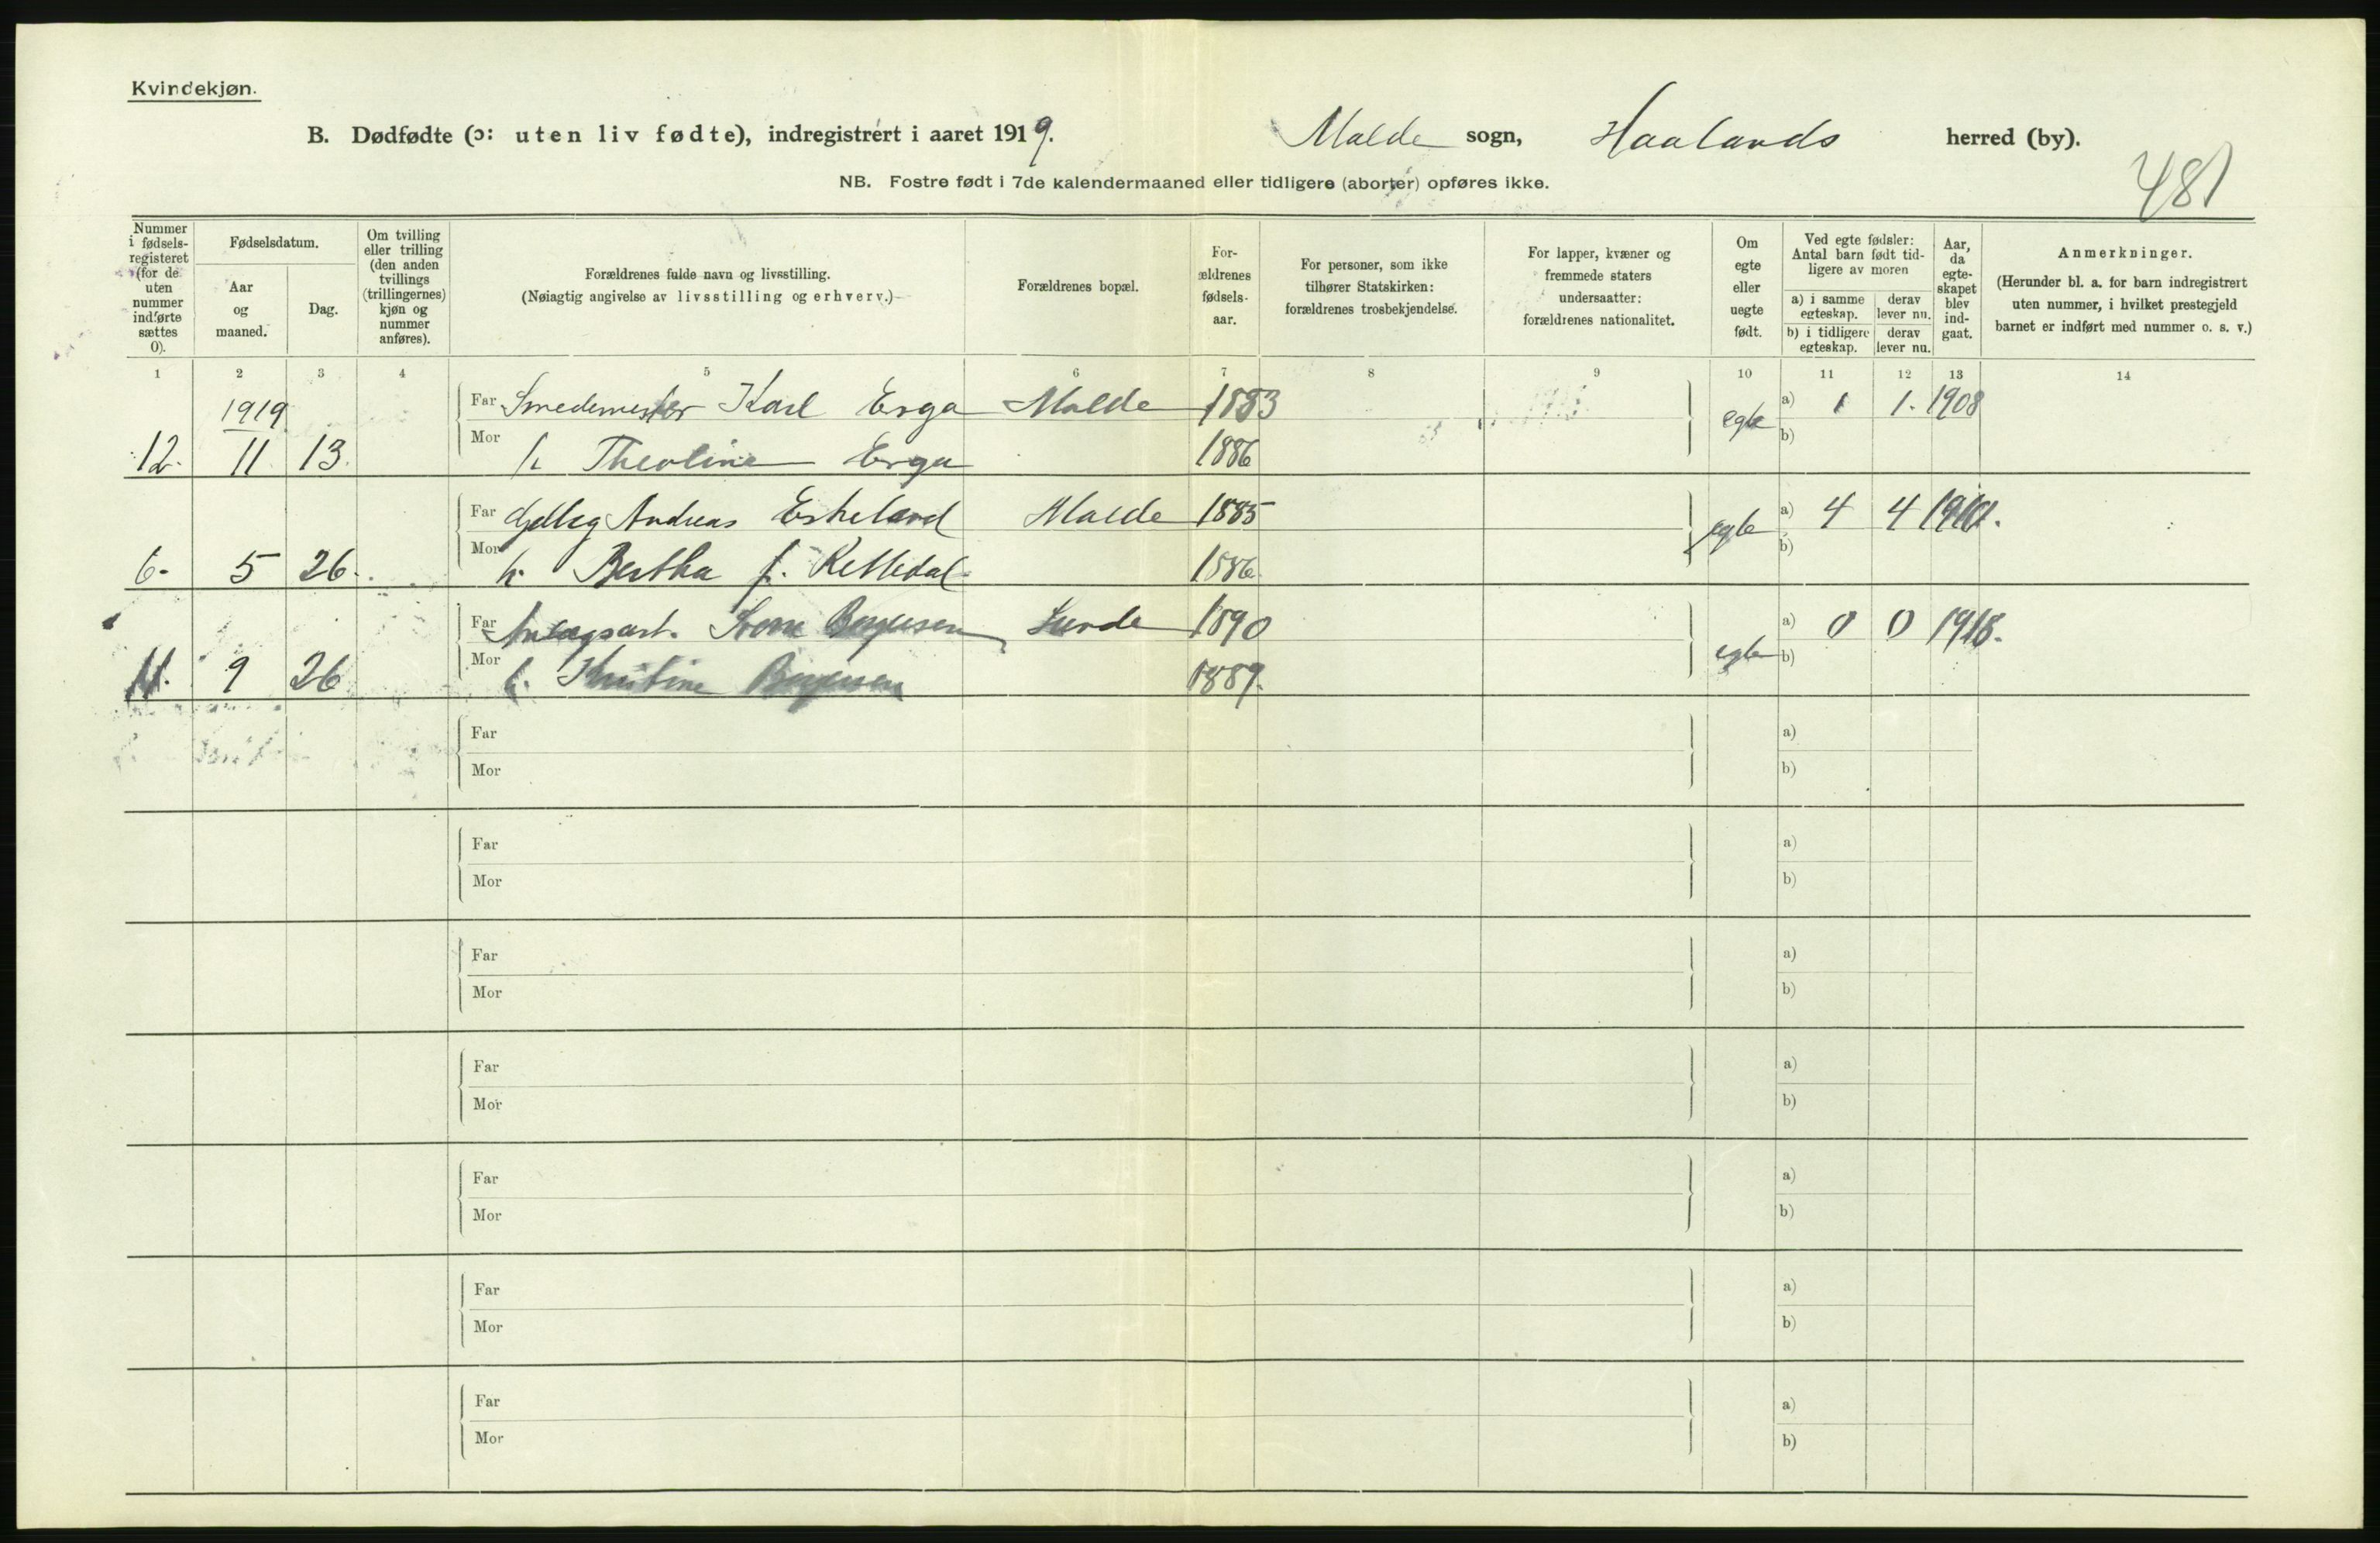 Kvindekjøn.
B. Dødfødte (ɔ: uten liv fødte), indregistrert i aaret 1919. Malde sogn, Haalands herred (by).
NB. Fostre født i 7de kalendermaaned eller tidligere (aborter) opføres ikke.
481
Nummer i fødsels-registeret (for de uten nummer indførte sættes 0).
Fødselsdatum.
Aar og maaned.
Dag.
Om tvilling eller trilling (den anden tvillings (trillingernes) kjøn og nummer anføres).
Forældrenes fulde navn og livsstilling.
(Nøiagtig angivelse av livsstilling og erhverv.)
Forældrenes bopæl.
For-ældrenes fødsels-aar.
For personer, som ikke tilhører Statskirken: forældrenes trosbekjendelse.
For lapper, kvæner og fremmede staters undersaatter: forældrenes nationalitet.
Om egte eller uegte født.
Ved egte fødsler: Antal barn født tid-ligere av moren
a) i samme egteskap. derav lever nu.
b) i tidligere egteskap. derav lever nu.
Aar, da egte-skapet blev ind-gaat.
Anmerkninger.
(Herunder bl. a. for barn indregistrert uten nummer, i hvilket prestegjeld barnet er indført med nummer o. s. v.)
1 2 3 4 5 6 7 8 9 10 11 12 13 14
1919 Far Smedemester Karl Erga Malde 1883 egte a) 1 1. 1908
12. 11 13. Mor h. Theoline Erga 1886 b)
Far Andreas Eskeland Malde 1885 egte a) 4 4
6. 5 26. Mor h. Bertha f. Kettedal 1886. b)
Far Anlægsarb. Sunde 1890 egte a) 0 0 1918.
11. 9 26 Mor h. Kristine 1889. b)
Far a)
Mor b)
Far a)
Mor b)
Far a)
Mor b)
Far a)
Mor b)
Far a)
Mor b)
Far a)
Mor b)
Far a)
Mor b)